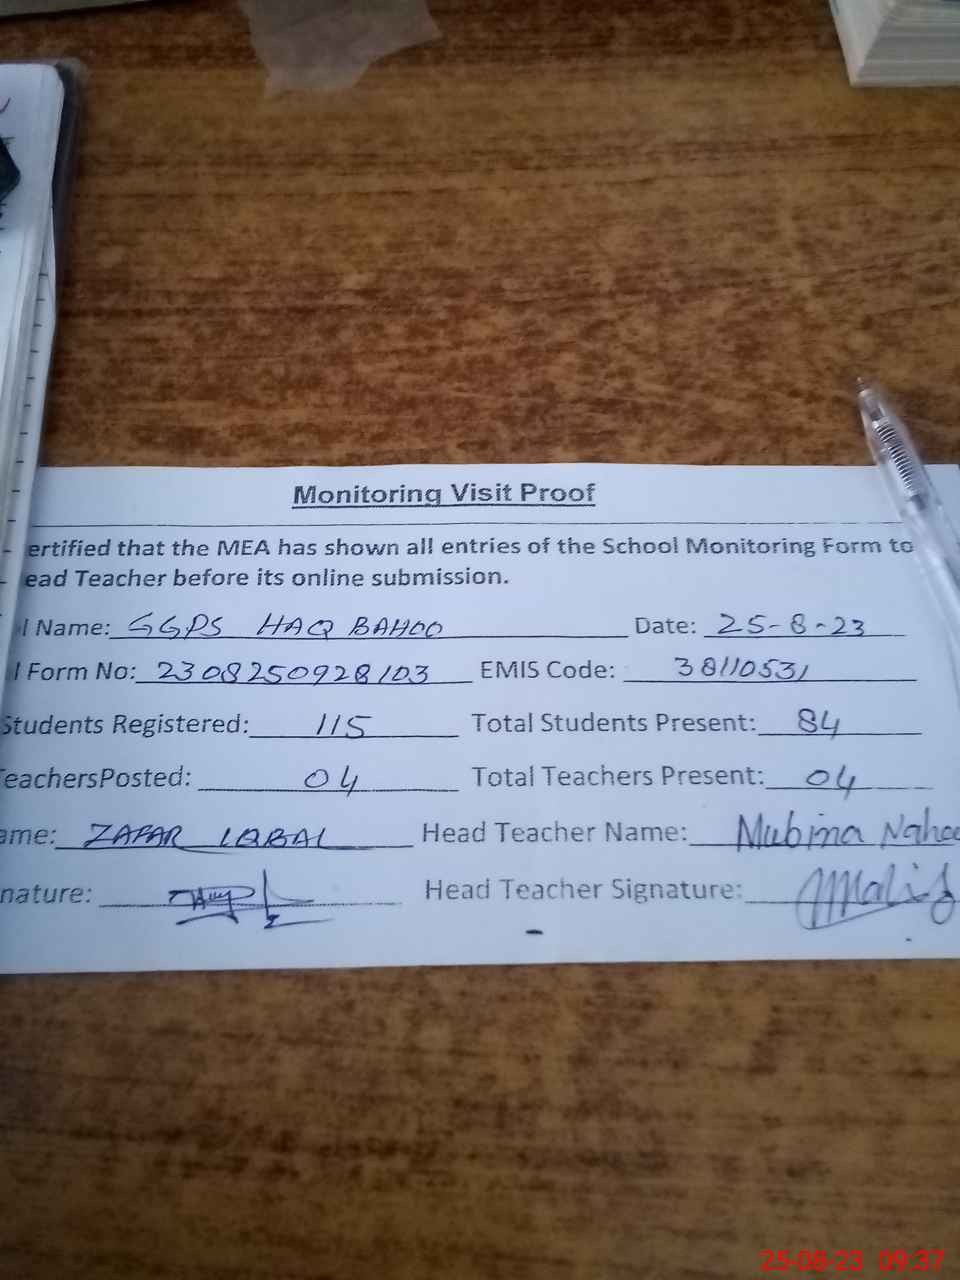 Monitoring Visit Proof
ertified that the MEA has shown all entries of the School Monitoring Form to
ead Teacher before its online submission.
l Name: GGPS HAQ BAHOO Date: 25-8-23
l Form No: 2308250928103 EMIS Code: 38110531
Students Registered: 115 Total Students Present: 84
TeachersPosted: 04 Total Teachers Present: 04
ame: ZAFAR IQBAL Head Teacher Name: Mubina
nature: Head Teacher Signature:
25-08-23 09:37